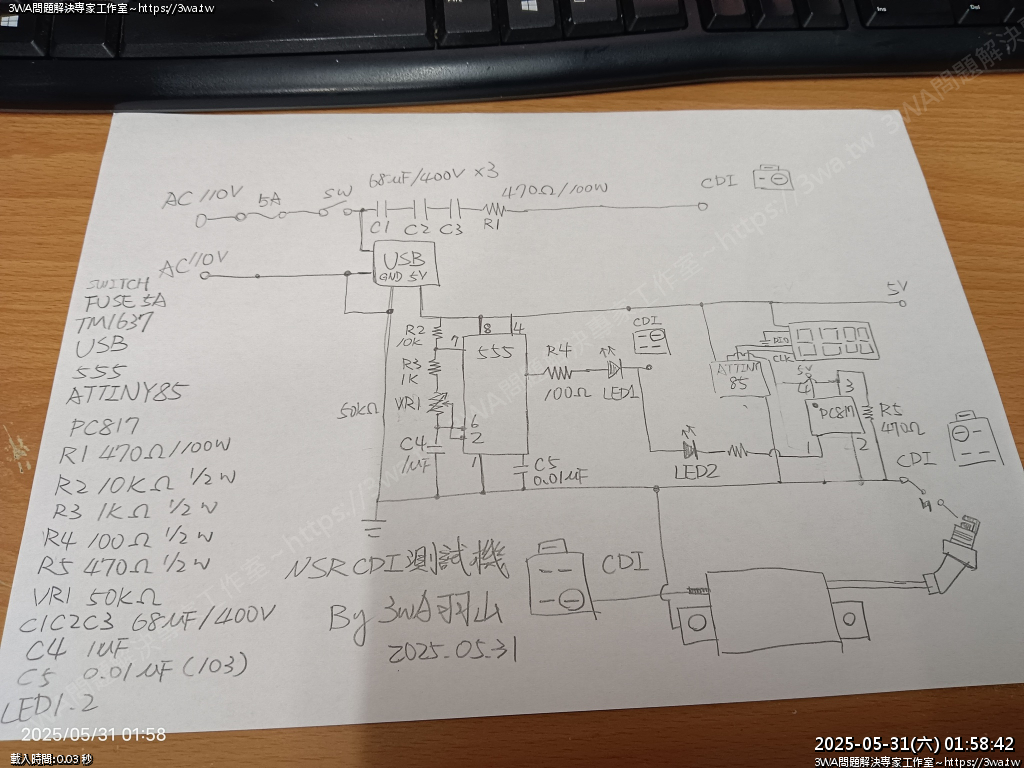 3WA問題解決專家工作室~https://3wa.tw
Ins
Del
AC 110V
5A
SW
68uF/400V ×3
470Ω/100W
CDI
C1 C2 C3 R1
AC 110V
USB
GND 5V
5V
SWITCH
FUSE 5A
TM1637
USB
555
ATTINY85
PC817
R1 470Ω/100W
R2 10KΩ 1/2W
R3 1KΩ 1/2W
R4 100Ω 1/2W
R5 470Ω 1/2W
VR1 50KΩ
C1C2C3 68uF/400V
C4 1uF
C5 0.01uF (103)
LED1.2
R2
10K
R3
1K
VR1
50KΩ
C4
1uF
7
8
4
555
6
2
1
C5
0.01uF
R4
100Ω
LED1
CDI
LED2
ATTINY
85
DIO
CLK
5V
4
3
PC817
1
2
R5
470Ω
CDI
NSR CDI 測試機
By 3WA羽山
2025.05.31
CDI
2025/05/31 01:58
載入時間:0.03 秒
2025-05-31(六) 01:58:42
3WA問題解決專家工作室~https://3wa.tw